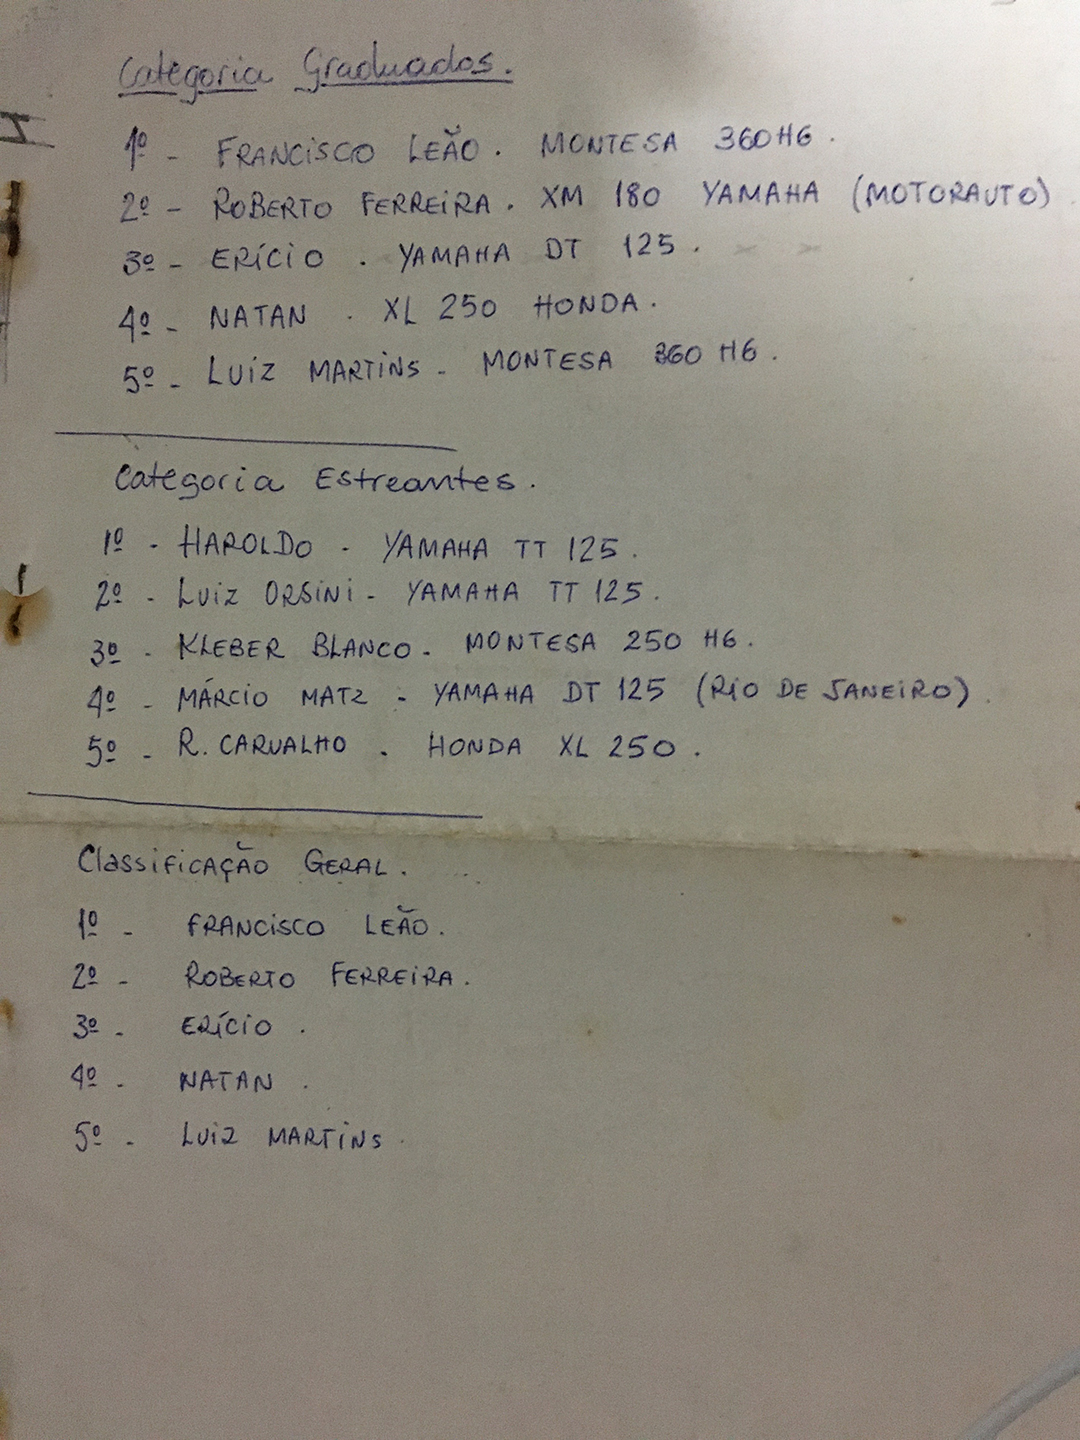 Categoria Graduados.
1º - FRANCISCO LEÃO. MONTESA 360 H6.
2º - ROBERTO FERREIRA. XM 180 YAMAHA (MOTORAUTO)
3º - ERÍCIO. YAMAHA DT 125.
4º - NATAN. XL 250 HONDA.
5º - LUIZ MARTINS - MONTESA 360 H6.
Categoria Estreantes.
1º - HAROLDO - YAMAHA TT 125.
2º - LUIZ ORSINI - YAMAHA TT 125.
3º - KLEBER BLANCO - MONTESA 250 H6.
4º - MÁRCIO MATZ - YAMAHA DT 125 (RIO DE JANEIRO).
5º - R. CARVALHO. HONDA XL 250.
Classificação GERAL.
1º - FRANCISCO LEÃO.
2º - ROBERTO FERREIRA.
3º - ERÍCIO.
4º - NATAN.
5º - LUIZ MARTINS.